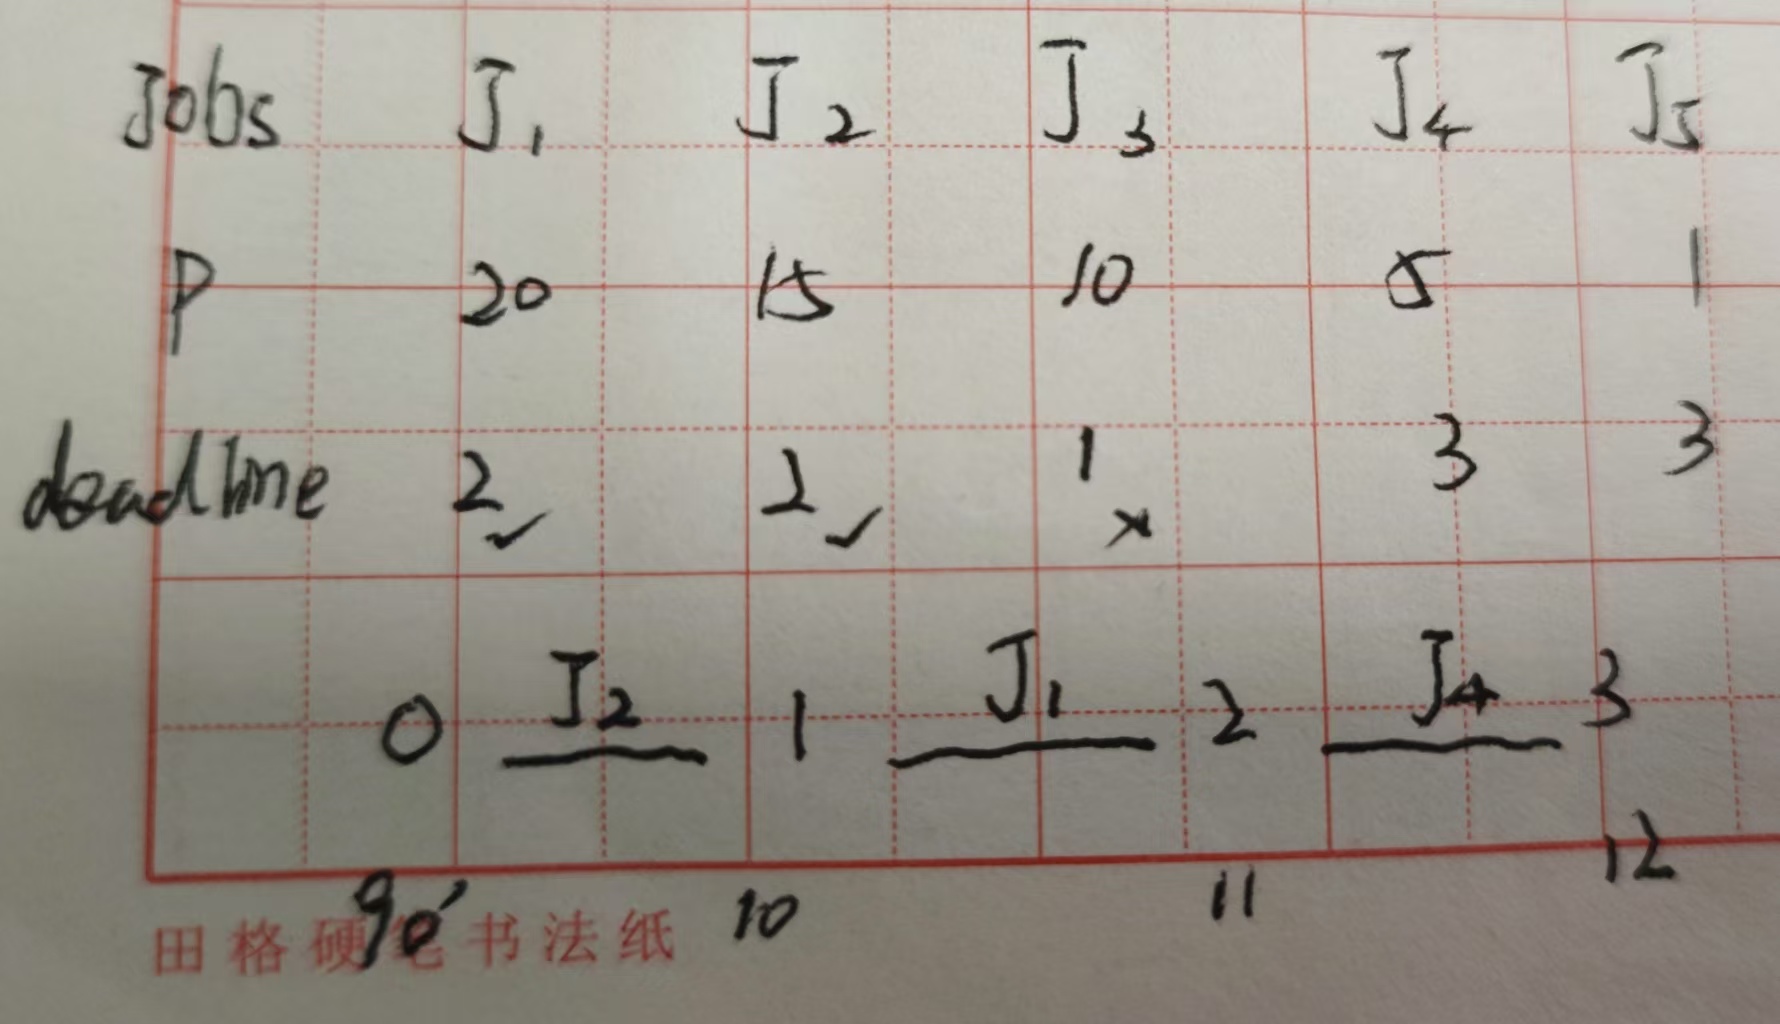 Jobs J1 J2 J3 J4 J5
P 20 15 10 5 1
deadline 2 ✓ 2 ✓ 1 × 3 3
0 J2 1 J1 2 J4 3
10 11 12
田格硬笔书法纸